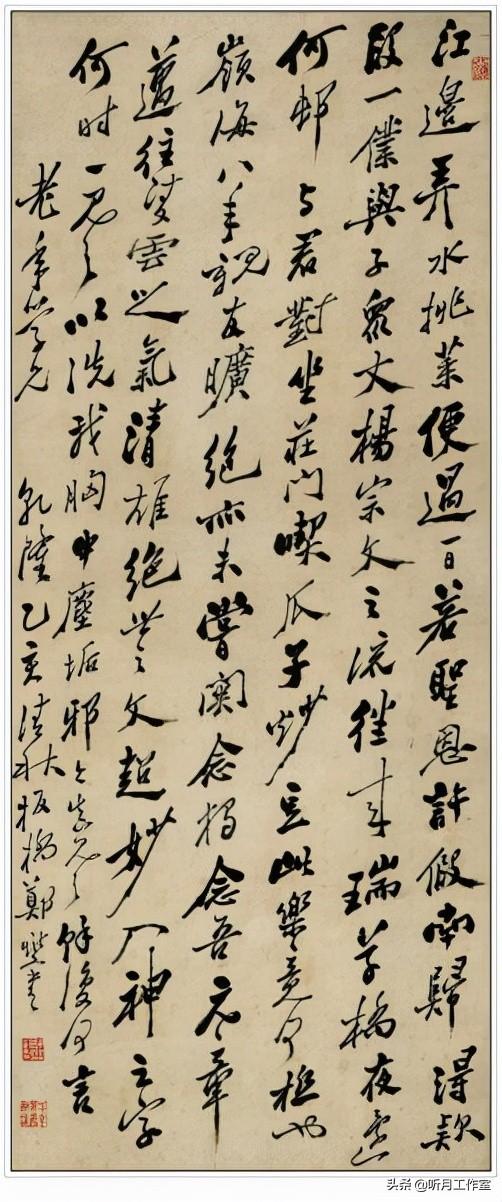 江邊弄水挑菜便過一日若聖恩許假南歸得款
段一僕與子眾丈楊宗文之流往來瑞草橋夜還
何邨与君對坐莊門喫瓜子炒豆此樂竟何極也
嶺海八年親友曠絕亦未嘗闊念獨念吾元章
邁往凌雲之氣清雄絕世之文超妙入神之字
何時一見之以洗我胸中塵垢邪今真見之餘復何言
老年學兄 乾隆乙亥清秋板橋鄭燮書
头条 @听月工作室